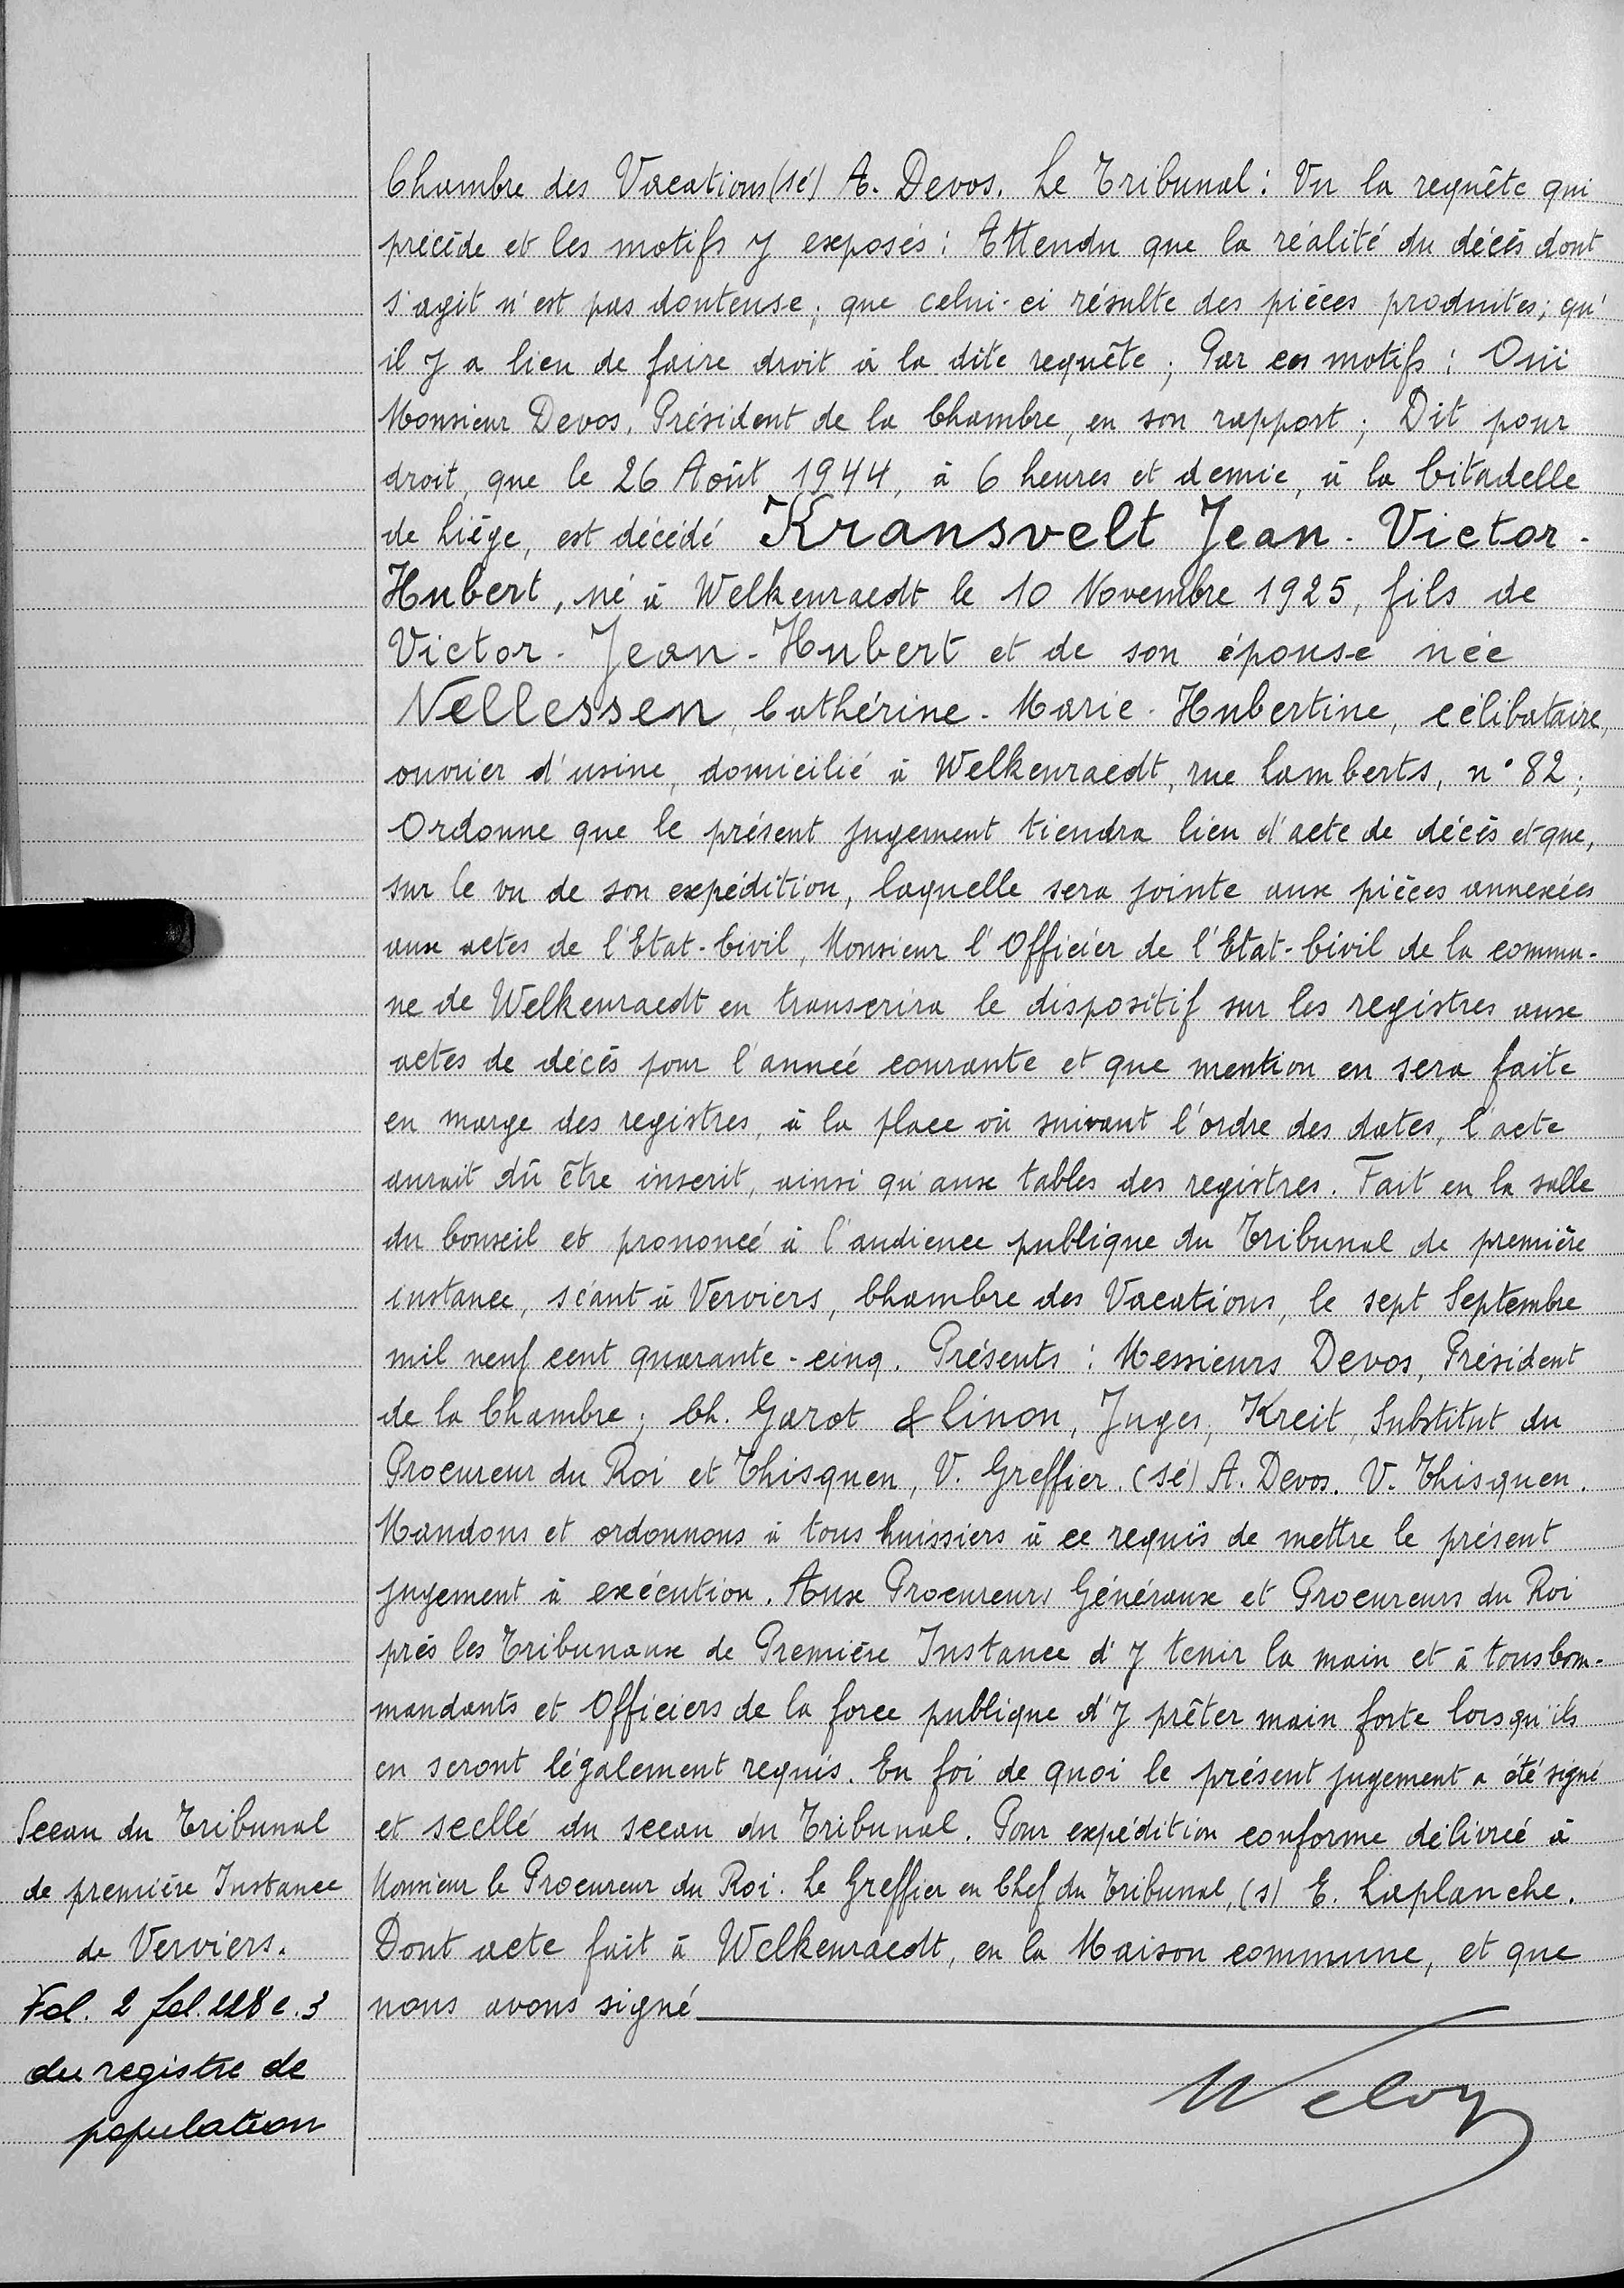 Chambre des Vacations (sé) A. Devos. Le Tribunal : Vu la requête qui
précède et les motifs y exposés : Attendu que la réalité du décès dont
s'agit n'est pas douteuse ; que celui-ci résulte des pièces produites ; qu'
il y a lieu de faire droit à la dite requête ; Par ces motifs : Ouï
Monsieur Devos, Président de la Chambre, en son rapport ; Dit pour
droit, que le 26 Août 1944, à 6 heures et demie, à la Citadelle
de Liége, est décédé Kransvelt Jean - Victor -
Hubert, né à Welkenraedt le 10 Novembre 1925, fils de
Victor - Jean - Hubert et de son épouse née
Nellessen, Cathérine - Marie - Hubertine, célibataire,
ouvrier d'usine, domicilié à Welkenraedt, rue Lamberts, n° 82 ;
Ordonne que le présent jugement tiendra lieu d'acte de décès et que,
sur le vu de son expédition, laquelle sera jointe aux pièces annexées
aux actes de l'Etat-Civil, Monsieur l'Officier de l'Etat-Civil de la commu-
ne de Welkenraedt en transcrira le dispositif sur les registres aux
actes de décès pour l'année courante et que mention en sera faite
en marge des registres, à la place où suivant l'ordre des dates, l'acte
aurait dû être inscrit, ainsi qu'aux tables des registres. Fait en la salle
du Conseil et prononcé à l'audience publique du Tribunal de première
instance, séant à Verviers, Chambre des Vacations, le sept Septembre
mil neuf cent quarante-cinq. Présents : Messieurs Devos, Président
de la Chambre ; Ch. Garot & Linon, Juges, Kreit, Substitut du
Procureur du Roi et Thisquen, V. Greffier. (sé) A. Devos. V. Thisquen.
Mandons et ordonnons à tous huissiers à ce requis de mettre le présent
jugement à exécution. Aux Procureurs Généraux et Procureurs du Roi
près les Tribunaux de Première Instance d'y tenir la main et à tous Com-
mandants et Officiers de la force publique d'y prêter main forte lorsqu'ils
en seront légalement requis. En foi de quoi le présent jugement a été signé
et scellé du sceau du Tribunal. Pour expédition conforme délivrée à
Monsieur le Procureur du Roi. Le Greffier en Chef du Tribunal, (s) E. Laplanche.
Dont acte fait à Welkenraedt, en la Maison commune, et que
nous avons signé
Sceau du Tribunal
de première Instance
de Verviers.
Vol. 2 fol. 228 c. 3
du registre de
population